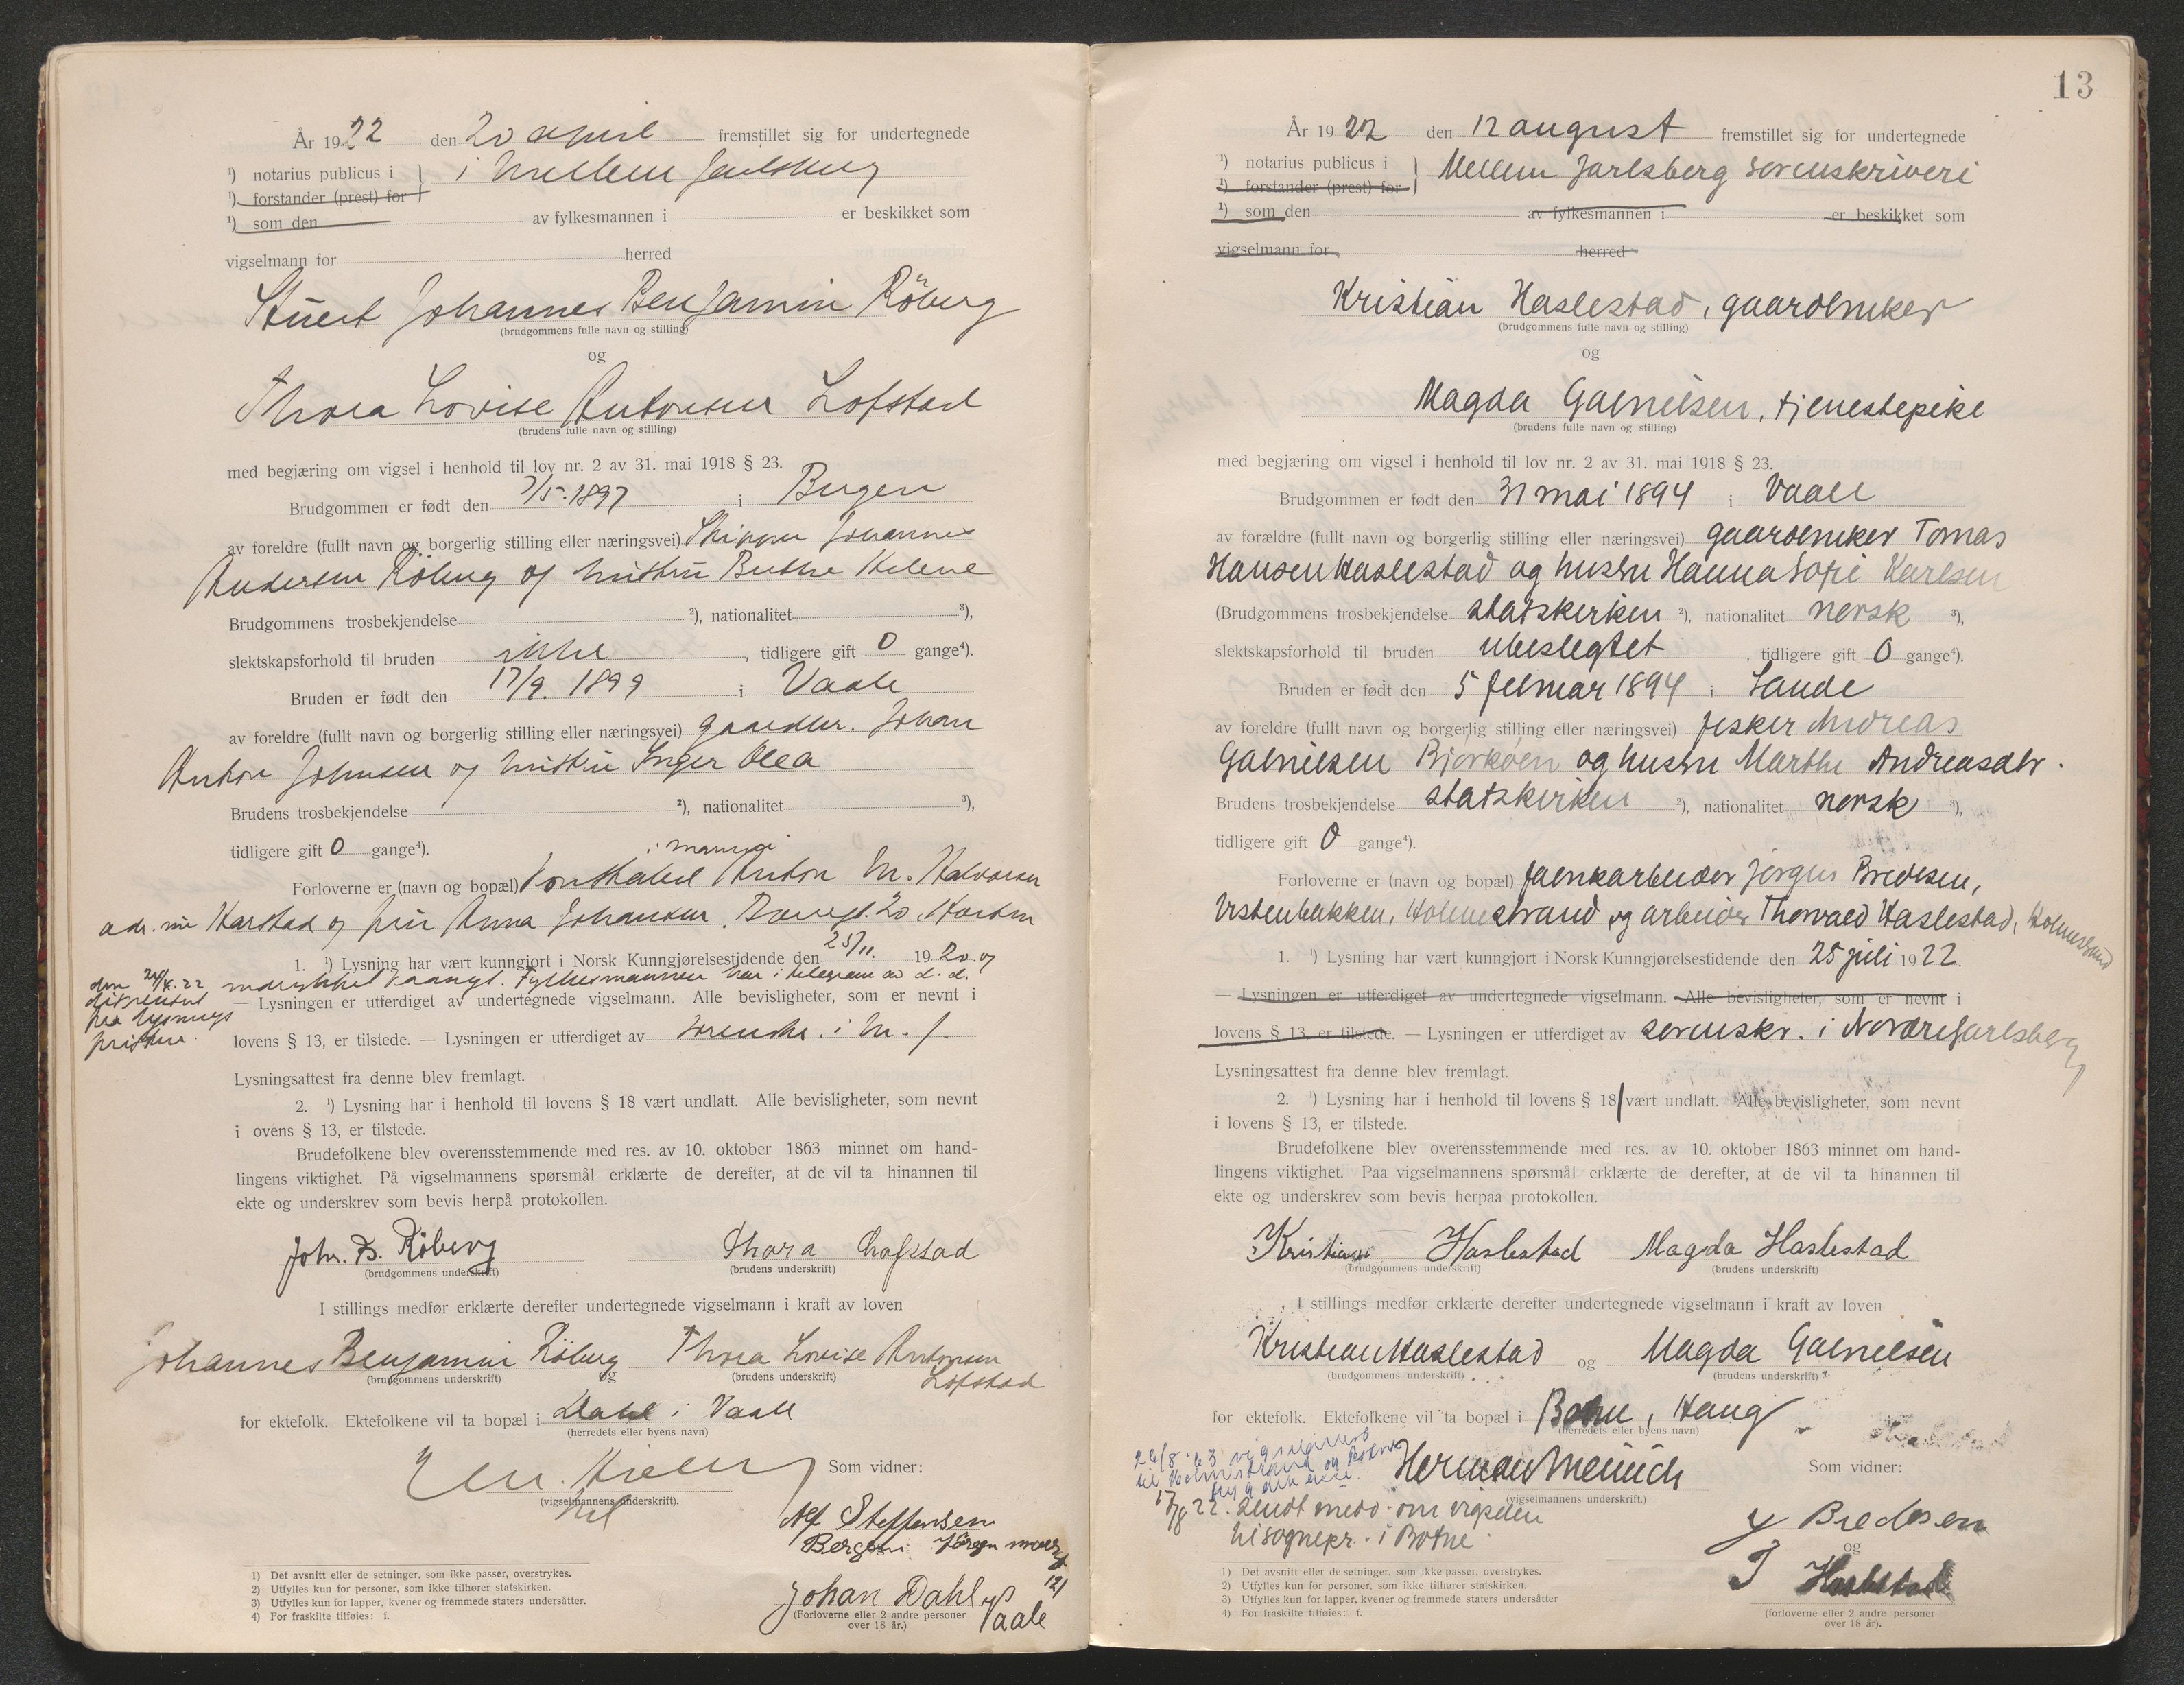 År 1922 den 20 april fremstillet sig for undertegnede
¹) notarius publicus i } i Mellem Jarlsberg
¹) forstander (prest) for
¹) som den av fylkesmannen i er beskikket som
vigselmann for herred
Stuert Johannes Benjamin Röberg
(brudgommens fulle navn og stilling)
og
Thora Lovise Antonsen Lofstad
(brudens fulle navn og stilling)
med begjæring om vigsel i henhold til lov nr. 2 av 31. mai 1918 § 23.
Brudgommen er født den 7/5. 1897 i Bergen
av foreldre (fullt navn og borgerlig stilling eller næringsvei) Skipper Johannes
Andersen Röberg og hustru Berthe Helene
Brudgommens trosbekjendelse ²), nationalitet ³),
slektskapsforhold til bruden ikke, tidligere gift 0 gange⁴).
Bruden er født den 17/9. 1899 i Vaale
av foreldre (fullt navn og borgerlig stilling eller næringsvei) gaardbr. Johan
Anton Johnsen og hustru Inger Olea
Brudens trosbekjendelse ²), nationalitet ³),
tidligere gift 0 gange⁴).
i marinen
Forloverne er (navn og bopæl) Konstabel Anton M. Halvorsen
adr. nu Karstad og fru Anna Johansen, 20, Horten
1. ¹) Lysning har vært kunngjort i Norsk Kunngjørelsestidende den 25/11. 1920 og
den 20/4.22 Fylkesmannen har i telegram av d.d.
dispensert
fra lysnings
fristen.
— Lysningen er utferdiget av undertegnede vigselmann. Alle bevisligheter, som er nevnt i
lovens § 13, er tilstede. — Lysningen er utferdiget av sorenskr. i M. J.
Lysningsattest fra denne blev fremlagt.
2. ¹) Lysning har i henhold til lovens § 18 vært undlatt. Alle bevisligheter, som nevnt
i ovens § 13, er tilstede.
Brudefolkene blev overensstemmende med res. av 10. oktober 1863 minnet om hand-
lingens viktighet. På vigselmannens spørsmål erklærte de derefter, at de vil ta hinannen til
ekte og underskrev som bevis herpå protokollen.
Joh. B. Röberg Thora Lofstad
(brudgommens underskrift) (brudens underskrift)
I stillings medfør erklærte derefter undertegnede vigselmann i kraft av loven
Johannes Benjamin Röberg og Thora Lovise Antonsen
Lofstad
(brudgommens underskrift) (brudens underskrift)
for ektefolk. Ektefolkene vil ta bopæl i Dahl i Vaale
(herredets eller byens navn)
Som vidner:
(vigselmannens underskrift).
Alf Steffensen
Bergen Jörgen 121
Johan Dahl
Vaale
(Forloverne eller 2 andre personer
over 18 år.)
1) Det avsnitt eller de setninger, som ikke passer, overstrykes.
2) Utfylles kun for personer, som ikke tilhører statskirken.
3) Utfylles kun for lapper, kvener og fremmede staters undersåtter.
4) For fraskilte tilføies: f.
13
År 1922 den 12 august fremstillet sig for undertegnede
¹) notarius publicus i } Mellem Jarlsberg Sorenskriveri
¹) forstander (prest) for
¹) som den av fylkesmannen i er beskikket som
vigselmann for herred
Kristian Haslestad, gaardbruker
(brudgommens fulle navn og stilling)
og
Magda Gabrielsen, tjenestepike
(brudens fulle navn og stilling)
med begjæring om vigsel i henhold til lov nr. 2 av 31. mai 1918 § 23.
Brudgommen er født den 31 mai 1894 i Vaale
av forældre (fullt navn og borgerlig stilling eller næringsvei) gaardbruker Tomas
Hansen Haslestad og hustru Hanna Sofie Karlsen
(Brudgommens trosbekjendelse statskirken ²), nationalitet norsk ³),
slektskapsforhold til bruden ubeslegtet, tidligere gift 0 gange⁴).
Bruden er født den 5 februar 1894 i Sande
av foreldre (fullt navn og borgerlig stilling eller næringsvei) fisker Andreas
Gabrielsen Bjerkøen og hustru Marthe Andreasdtr.
Brudens trosbekjendelse statskirken ²), nationalitet norsk ³),
tidligere gift 0 gange⁴).
Forloverne er (navn og bopæl) fabrikarbeider Jørgen Bredesen,
Holmestrand og arbeider Thorvald Haslestad, Holmestrand
1. ¹) Lysning har vært kunngjort i Norsk Kunngjørelsestidende den 25 juli 1922.
— Lysningen er utferdiget av undertegnede vigselmann. Alle bevisligheter, som er nevnt i
lovens § 13, er tilstede. — Lysningen er utferdiget av sorenskr. i Nordre Jarlsberg
Lysningsattest fra denne blev fremlagt.
2. ¹) Lysning har i henhold til lovens § 18 vært undlatt. Alle bevisligheter, som nevnt
i lovens § 13, er tilstede.
Brudefolkene blev overensstemmende med res. av 10. oktober 1863 minnet om hand-
lingens viktighet. Paa vigselmannens spørsmål erklærte de derefter, at de vil ta hinannen til
ekte og underskrev som bevis herpaa protokollen.
Kristian Haslestad Magda Haslestad
(brudgommens underskrift) (brudens underskrift)
I stillings medfør erklærte derefter undertegnede vigselmann i kraft av loven
Kristian Haslestad og Magda Gabrielsen
(brudgommens underskrift) (brudens underskrift)
for ektefolk. Ektefolkene vil ta bopæl i Botne, Haug
(herredets eller byens navn)
26/8-63 vigselattest
til Holmestrand og Botne
trygdekasse.
Herman Meinich Som vidner:
(vigselmannens underskrift.)
17/8 22. Sendt medd. om vigselen
til sognepr. i Botne.
J Bredesen
og
T Haslestad
(forloverne eller 2 andre personer
over 18 år).
1) Det avsnitt eller de setninger, som ikke passer, overstrykes.
2) Utfylles kun for personer, som ikke tilhører statskirken.
3) Utfylles kun for lapper, kvener og fremmede staters undersåtter
4) For fraskilte tilføies: f.